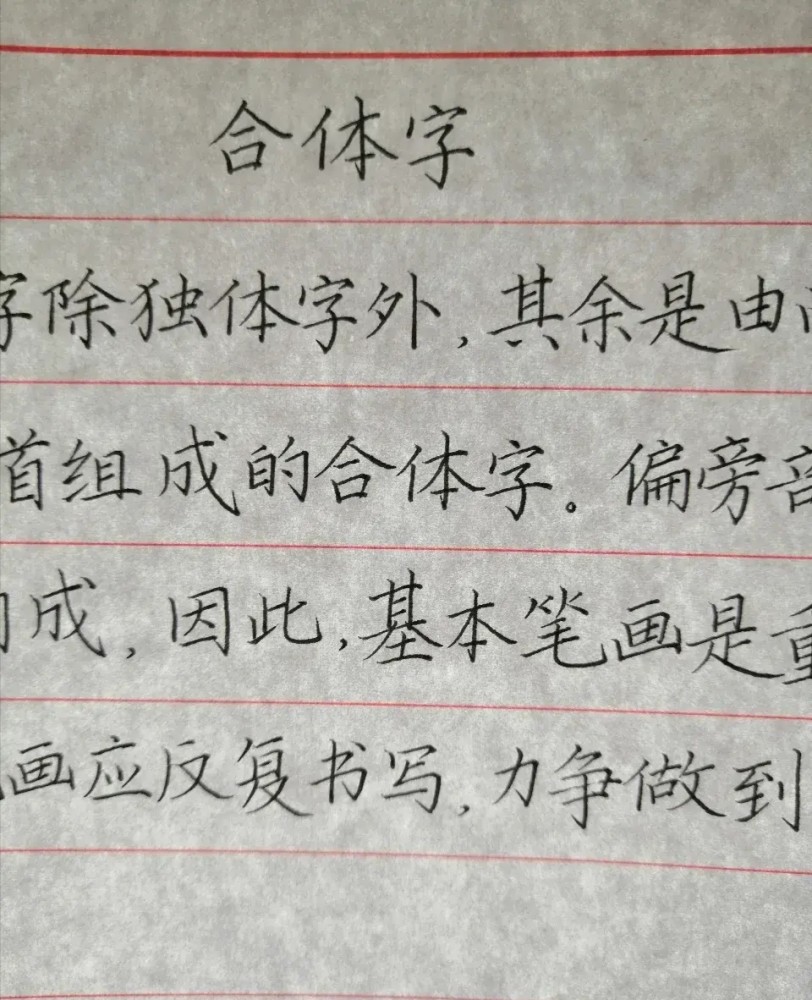 合体字
字除独体字外，其余是由
首组成的合体字。偏旁部
成，因此，基本笔画是重
画应反复书写，力争做到